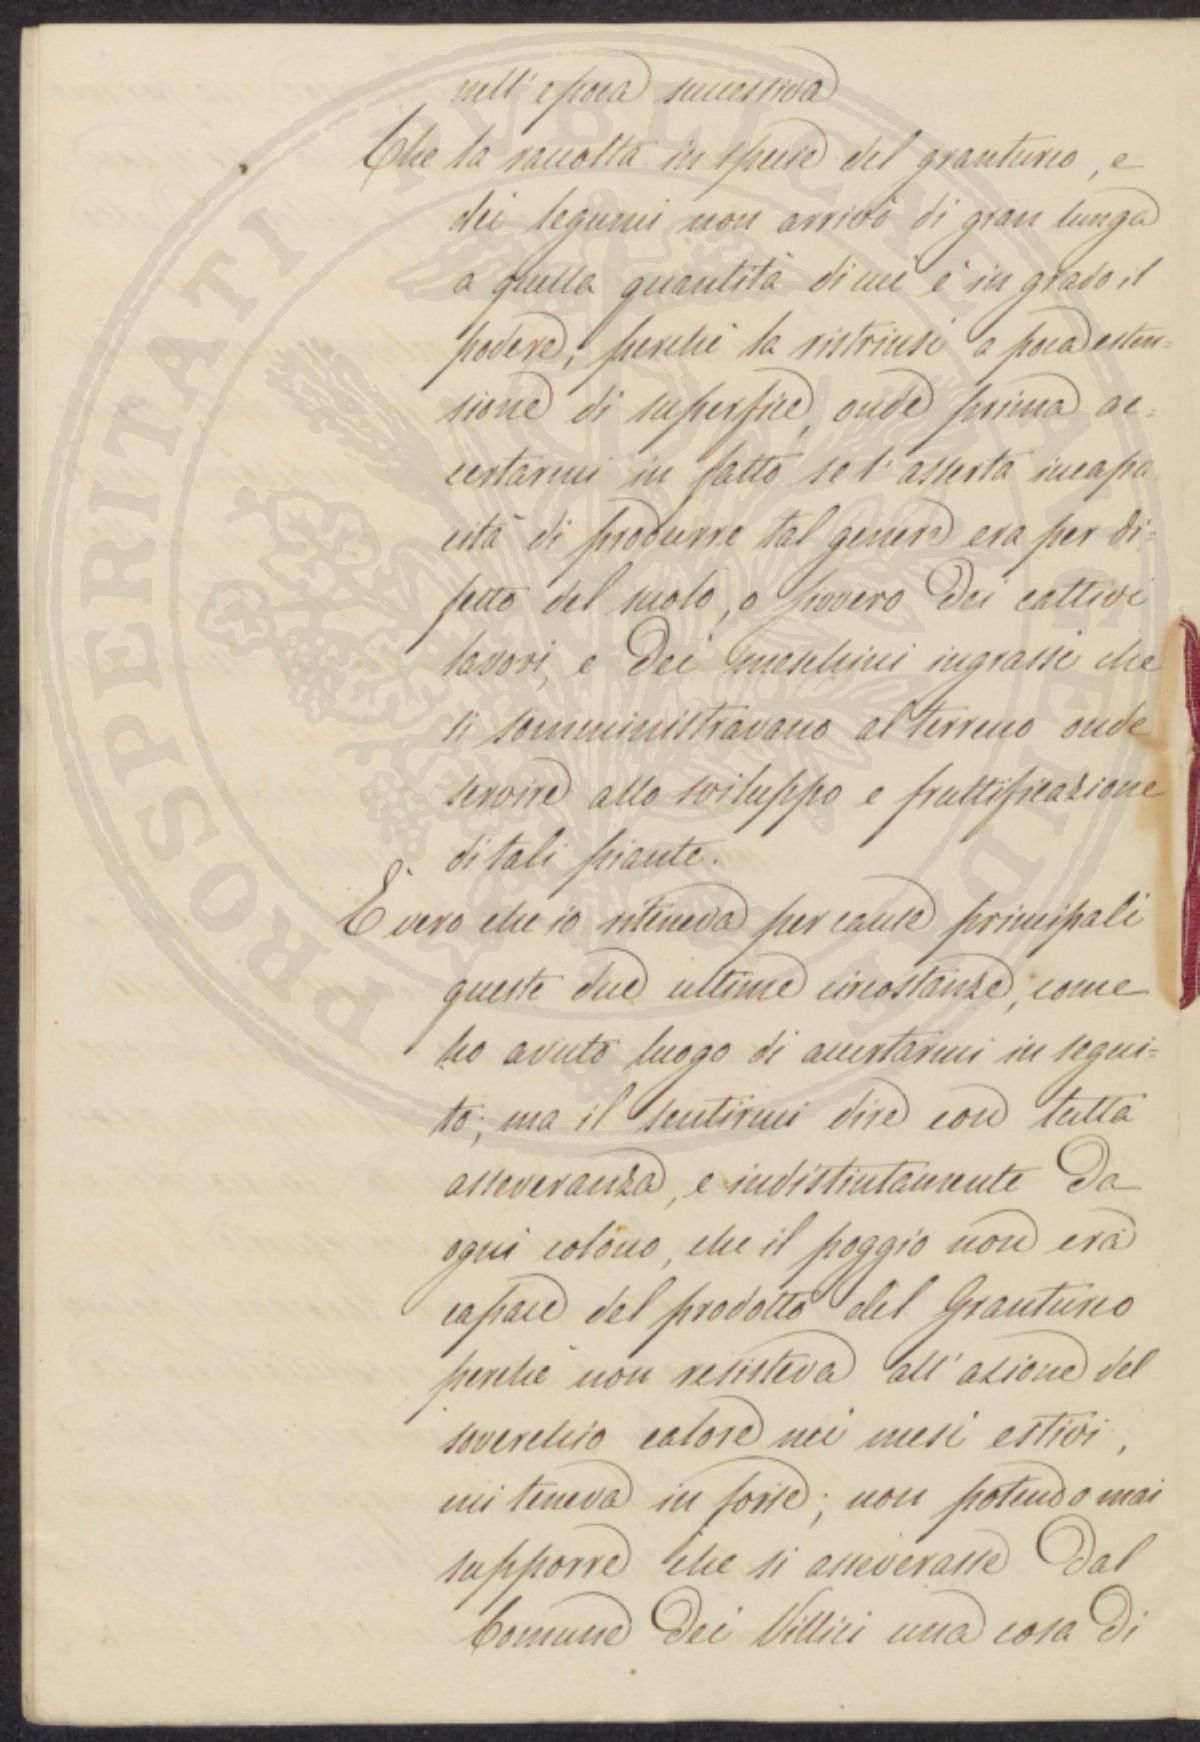 nell' epoca successiva
Che la raccolta in specie del granturco, e
dei legumi non arrivò di gran lunga
a quella quantità di cui è in grado il
podere, perchè la ristrinsi a poca esten=
sione di superfice, onde prima ac=
certarmi in fatto se l'asserta incapa
cità di produrre tal genere era per di=
fetto del suolo, o svvero Dei cattivi
lavori, e Dei meschini ingrassi che
si somministravano al terreno onde
servire allo sviluppo e fruttificazione
di tali piante.
È vero che io riteneva per cause principali
queste due ultime circostanze, come
ho avuto luogo di accertarmi in segui=
to; ma il sentirmi dire con tutta
asseveranza, e indistintamente Da
ogni colono, che il poggio non era
capace del prodotto del Granturco
perchè non resisteva all' azione del
soverchio calore nei mesi estivi,
mi teneva in forse; non potendo mai
supporre che si asseverasse Dal
Comune Dei Villici una cosa Di
PROSPERITATI PUBLICAE AUGENDAE